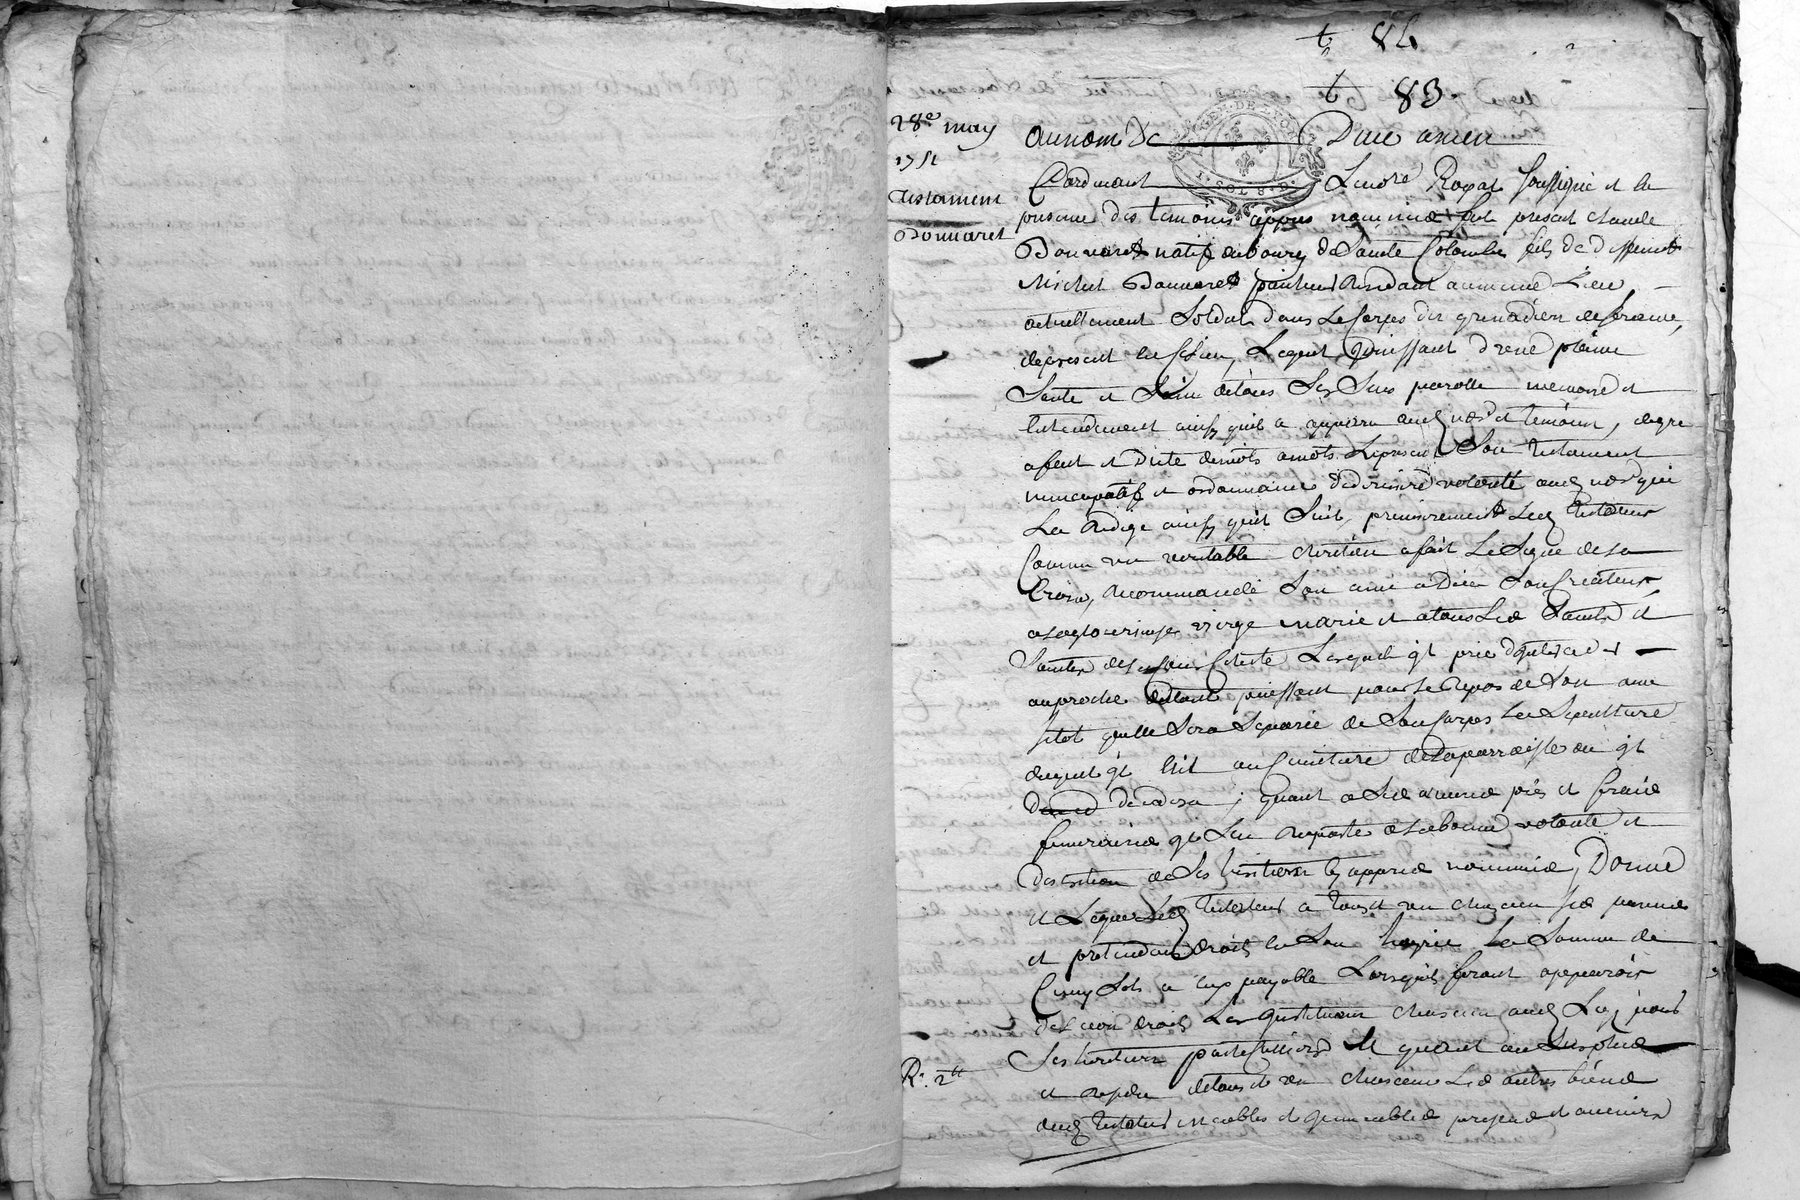 84
83
28e may
1751
testament
Donnaret
au nom de Dieu amen
Pardevant Le nore Royal soussigné et la
presence des temoins appres nommés fut present claude
Donnaret natif du bourg de Sainte Colombe fils de deffunt
Michel Donnaret residant au meme Lieu
actuellement Soldat dans Le Corps des grenadiers de france,
de present en ce Lieu, Lequel jouissant d'une pleine
Santé et Sain de tous Ses Sens parolle memoire et
Entendement ainsy quil a apparu aud nore et temoins, de gré
a fait et dicté de mots a mots Le present Son testament
nuncupatif et ordonnance de derniere volonté aud nore qui
La redigé ainsy quil Suit, premierement Led testateur
Comme un veritable chretien a fait Le Signe de la
Croix, recommandé Son ame a Dieu Son Createur,
a la glorieuse vierge marie et a tous Les Saints et
Saintes de la Cour Celeste Lesquels il prie
aupres de pour Le Repos de Son ame
sitot quelle Sera Separée de Son Corps La Sepulture
duquel il Elit au Cimetiere de la parroisse ou il
decedera ; quant a Ses aumones pies et fraix
funeraires il Sen rapporte a la bonne volonté et
discretion de Ses heritiers cy appres nommés, Donne
et Legue Led testateur a tous et un chacun Ses parens
et pretendans droit en Son hoyrie La Somme de
Cinq Sols a Eux payable Lorsquils feront apparoir
de Leur droit Les instituant chacun aud Legs pour
Ses heritiers particulliers Et quant au Surplus
R. 2tt
et residu de tous et un chacun Les autres biens
dud testateur meubles et immeubles presens et avenirs